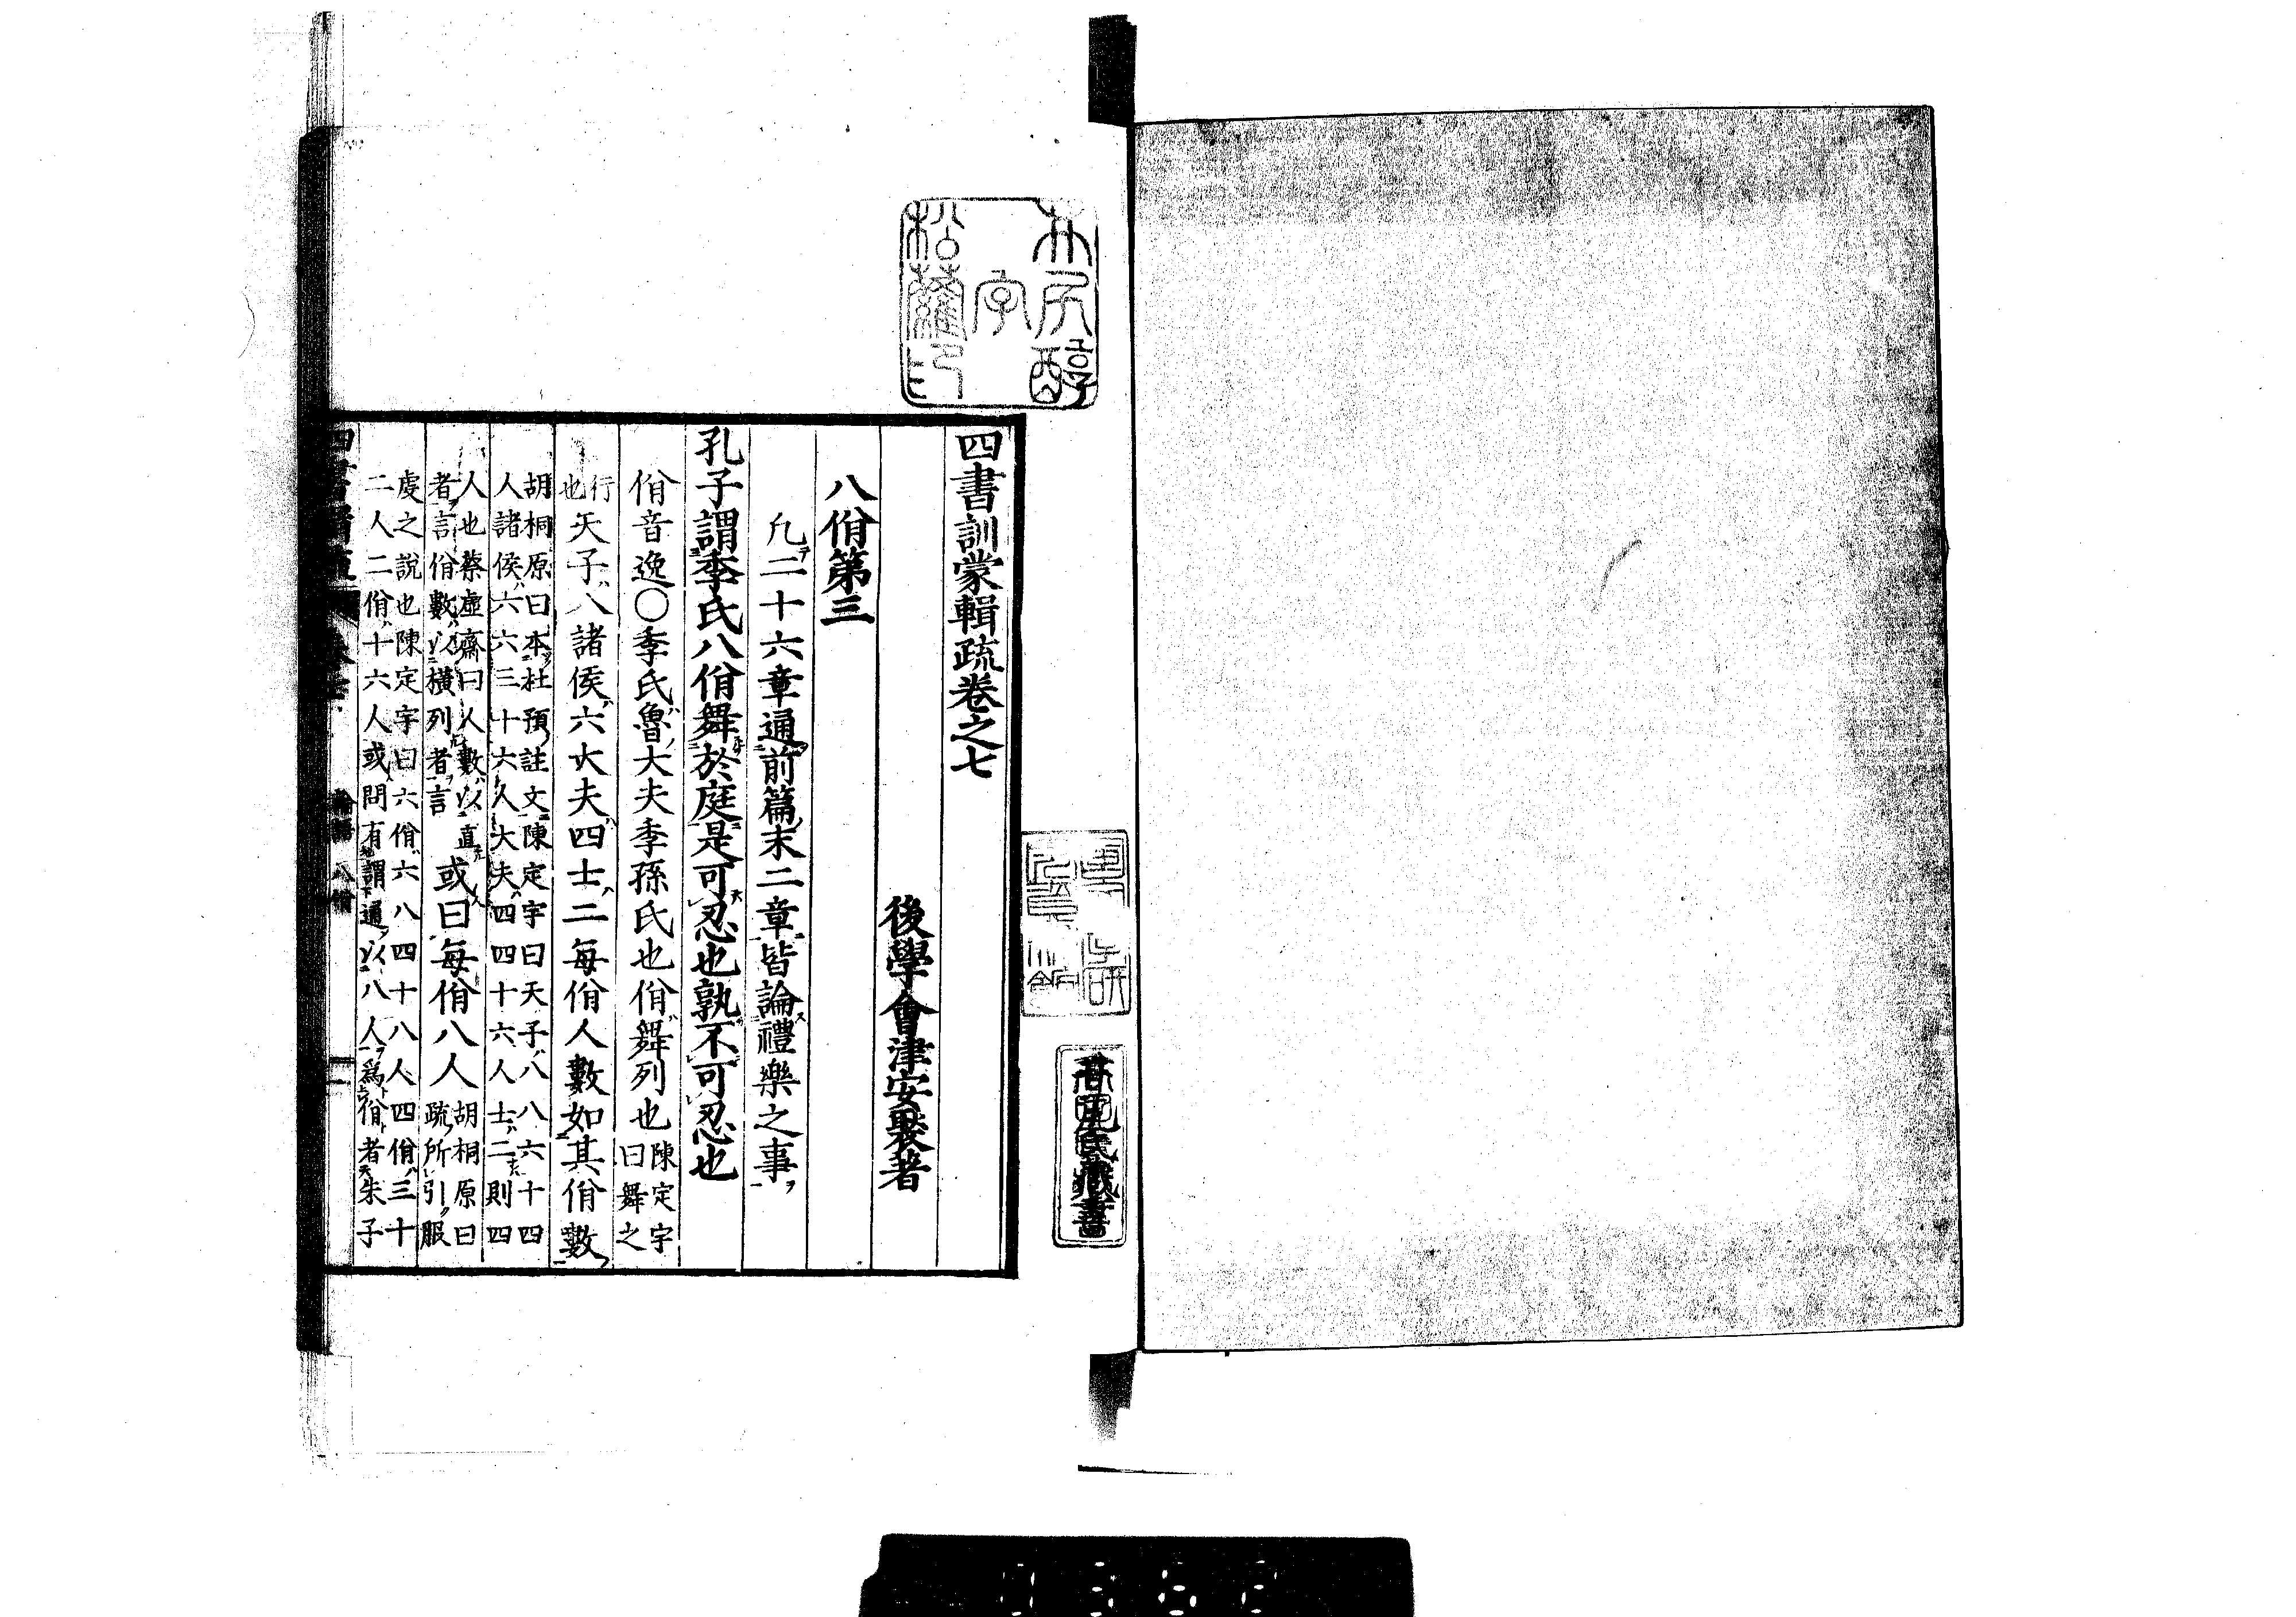 四書訓蒙輯疏卷之七
後學會津安褧著
八佾第三
凡二十六章通前篇末二章皆論禮樂之事
孔子謂季氏八佾舞於庭是可忍也孰不可忍也
佾音逸○季氏魯大夫季孫氏也佾舞列也陳定宇曰舞之
行也天子八諸侯六大夫四士二每佾人數如其佾數
胡桐原曰本杜預註文陳定宇曰天子八八六十四
人諸侯六六三十六人大夫四四十六人士二則四
人也蔡虛齋曰人數以直
者言佾數以橫列者言
或曰每佾八人胡桐原曰疏所引服
虔之說也陳定宇曰六佾六八四十八人四佾三十
二人二佾十六人或問有謂通以八人爲佾者朱子
論語 八佾